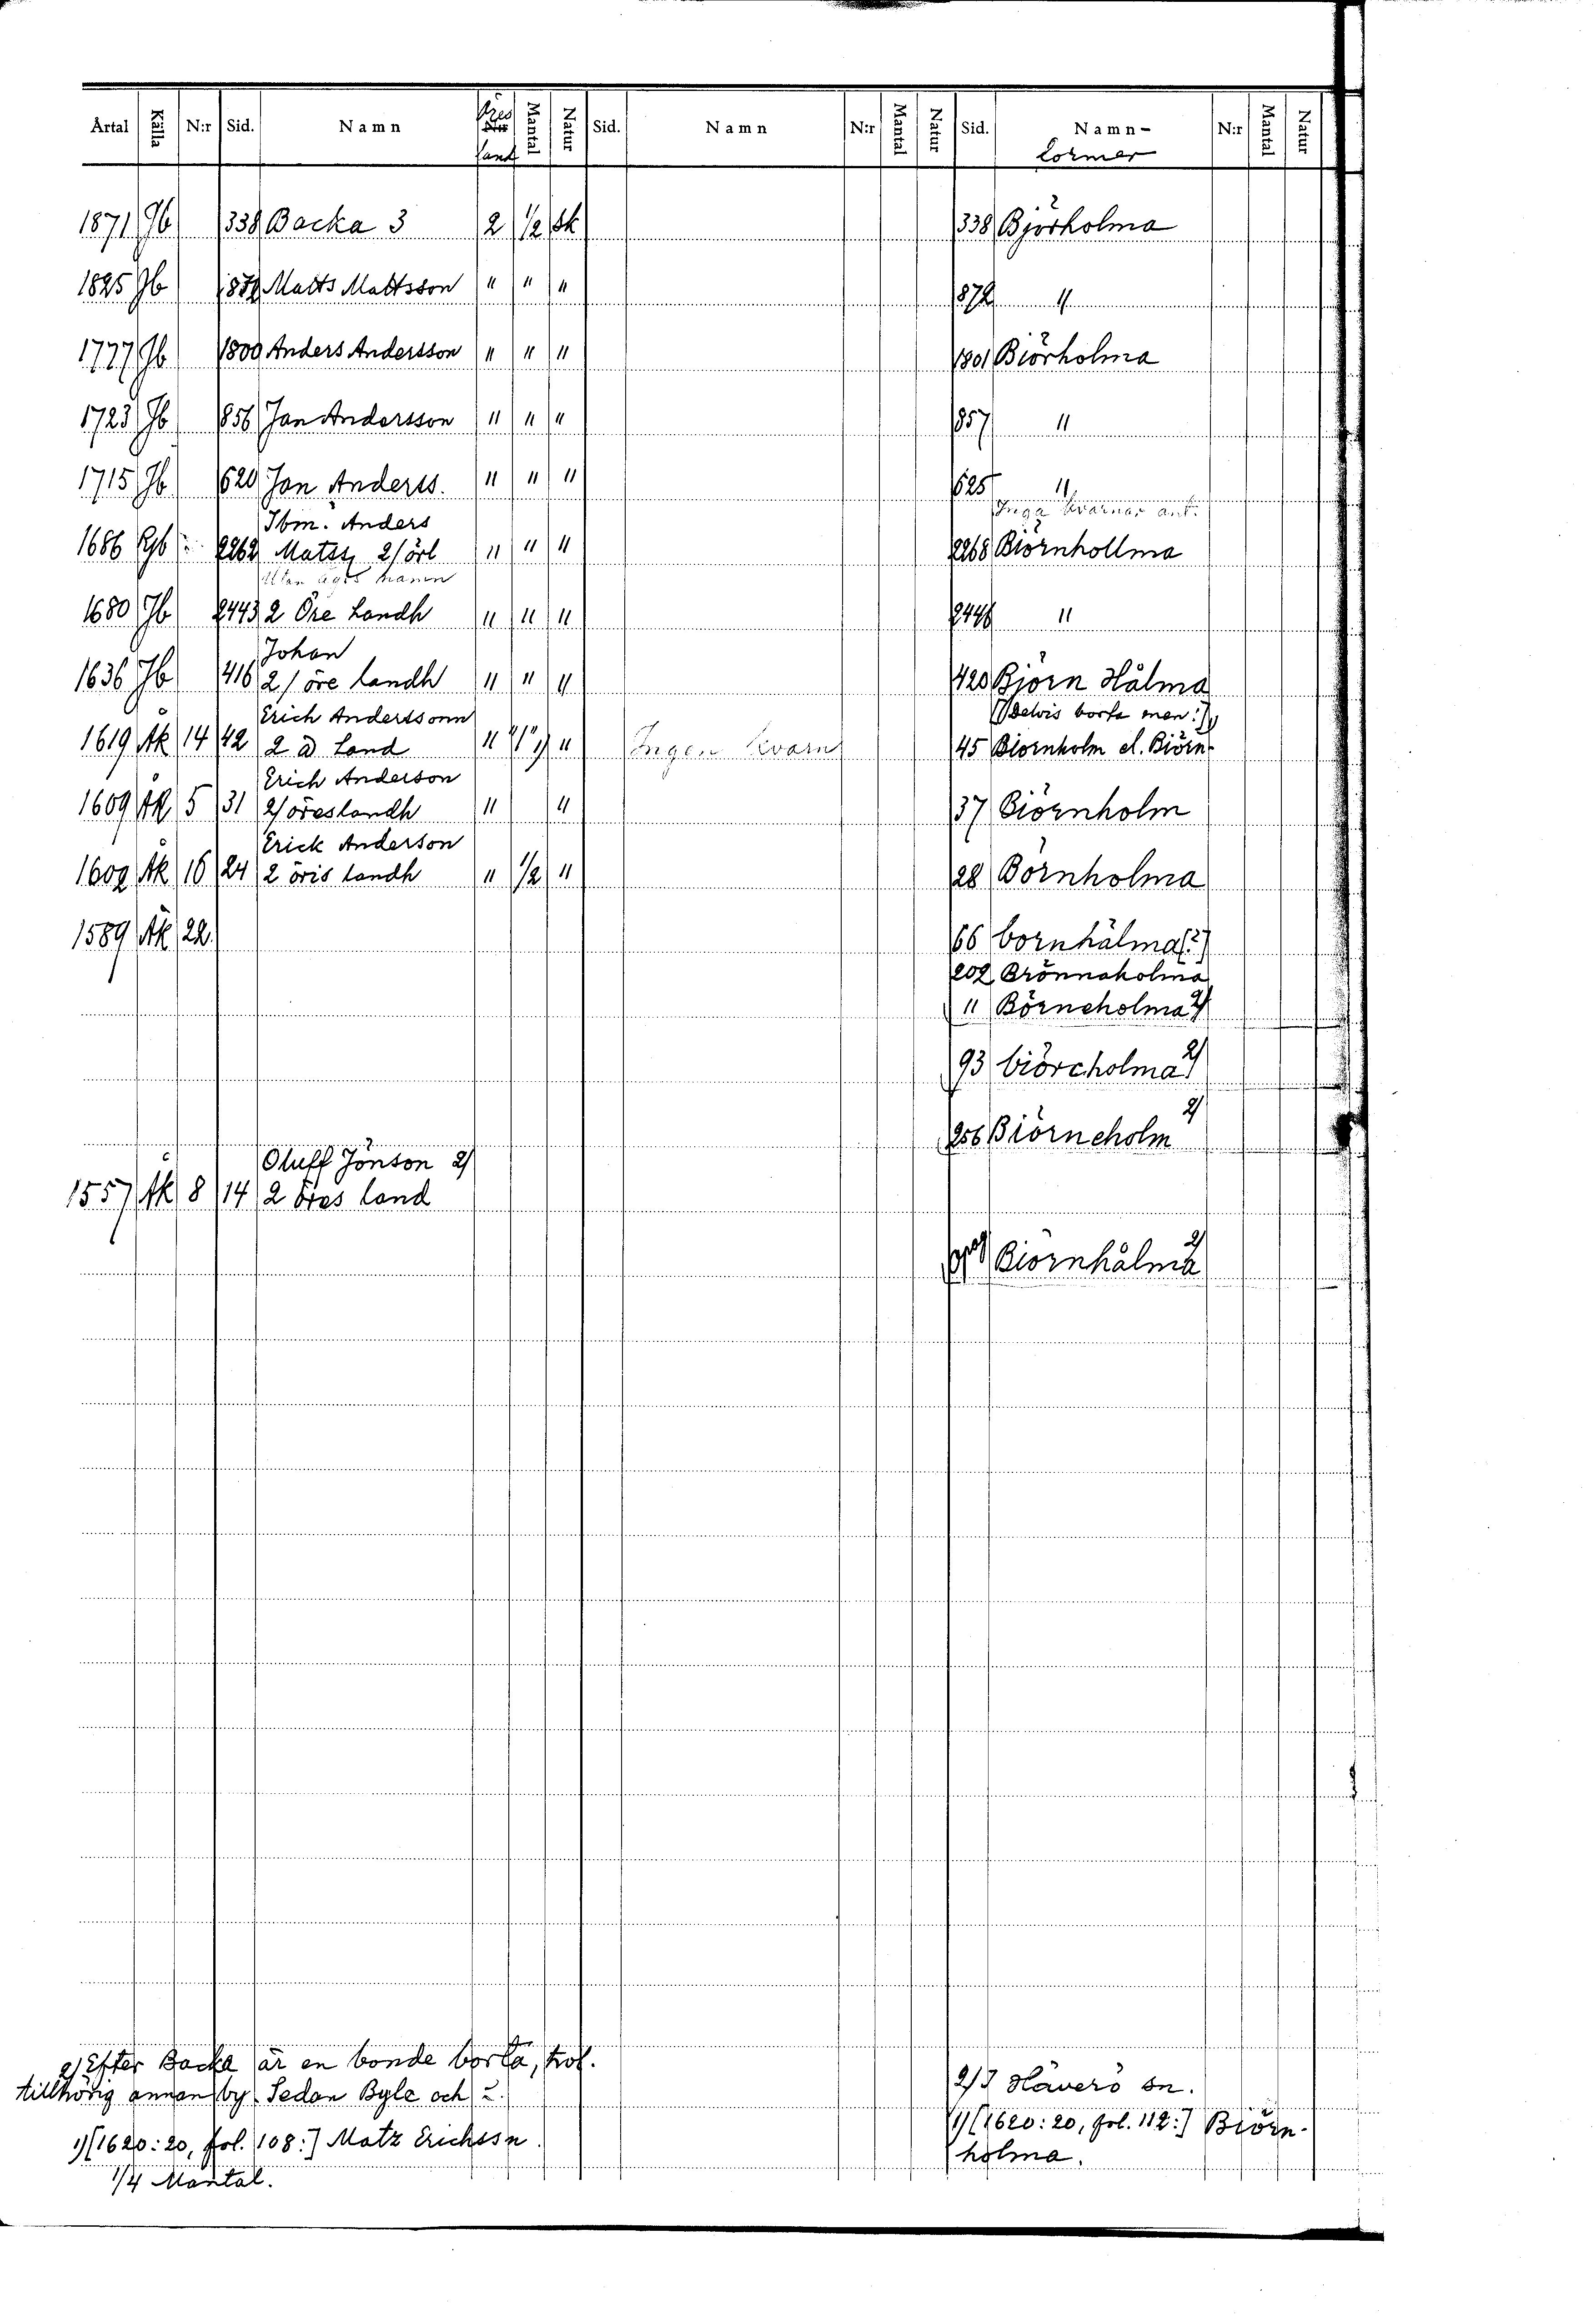 Årtal Källa N:r Sid. Namn Öres land Mantal Natur Sid. Namn N:r Mantal Natur Sid. Namn- former N:r Mantal Natur
1871 Jb 338 Backa 3 2 1/2 Sk 338 Björholma
1825 Jb 1872 Matts Mattsson " " " 1872 "
1777 Jb 1800 Anders Andersson " " " 1801 Biörholma
1723 Jb 856 Jan Andersson " " " 857 "
1715 Jb 620 Jan Anderss. " " " 625 "
Inga kvarnar ant.
Ibm. Anders
1686 Jb 2262 Matss 2/örl " " " 2268 Biörnhollma
Utan ägos namn
1680 Jb 2443 2 Öre Landh " " " 2448 "
Johan
1636 Jb 416 2/öre landh " " " 420 Björn Hålma
Erich Anderssonn [Delvis borta men:]
1619 Åk 14 42 2 ö Land " " 1) " Ingen kvarn 45 Biornholm el. Biörn-
Erich Anderson
1609 Åk 5 31 2/öreslandh " " 37 Biörnholm
Erick Anderson
1602 Åk 16 24 2 öris landh " 1/2 " 28 Börnholma
1589 Åk 22 66 bornhålma[?]
202 Brönnaholma
" Börneholma 2/
93 biörcholma 2/
256 Biörneholm 2/
Oluff Jönson 2/
1557 Åk 8 14 2 öres land
Biörnhålma 2/
2/ Efter Backa är en bonde borta, trol.
tillhörig annan by. Sedan Byle och
1) [1620:20, fol. 108:] Matz Erichssn.
1/4 Mantal.
2/ I Häverö sn.
1) [1620:20, fol. 112:] Biörn-
holma.